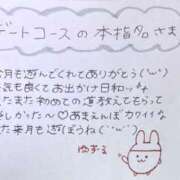 デートコースの本指名さま
今月も遊んでくれてありがとう(´˘`)
天気も良くてお出かけ日和
またまた初めての道教えてもらって
楽しかった〜♡あまえんぼカワイイな
また来月も遊ぼうね(´˘`)
ゆずる